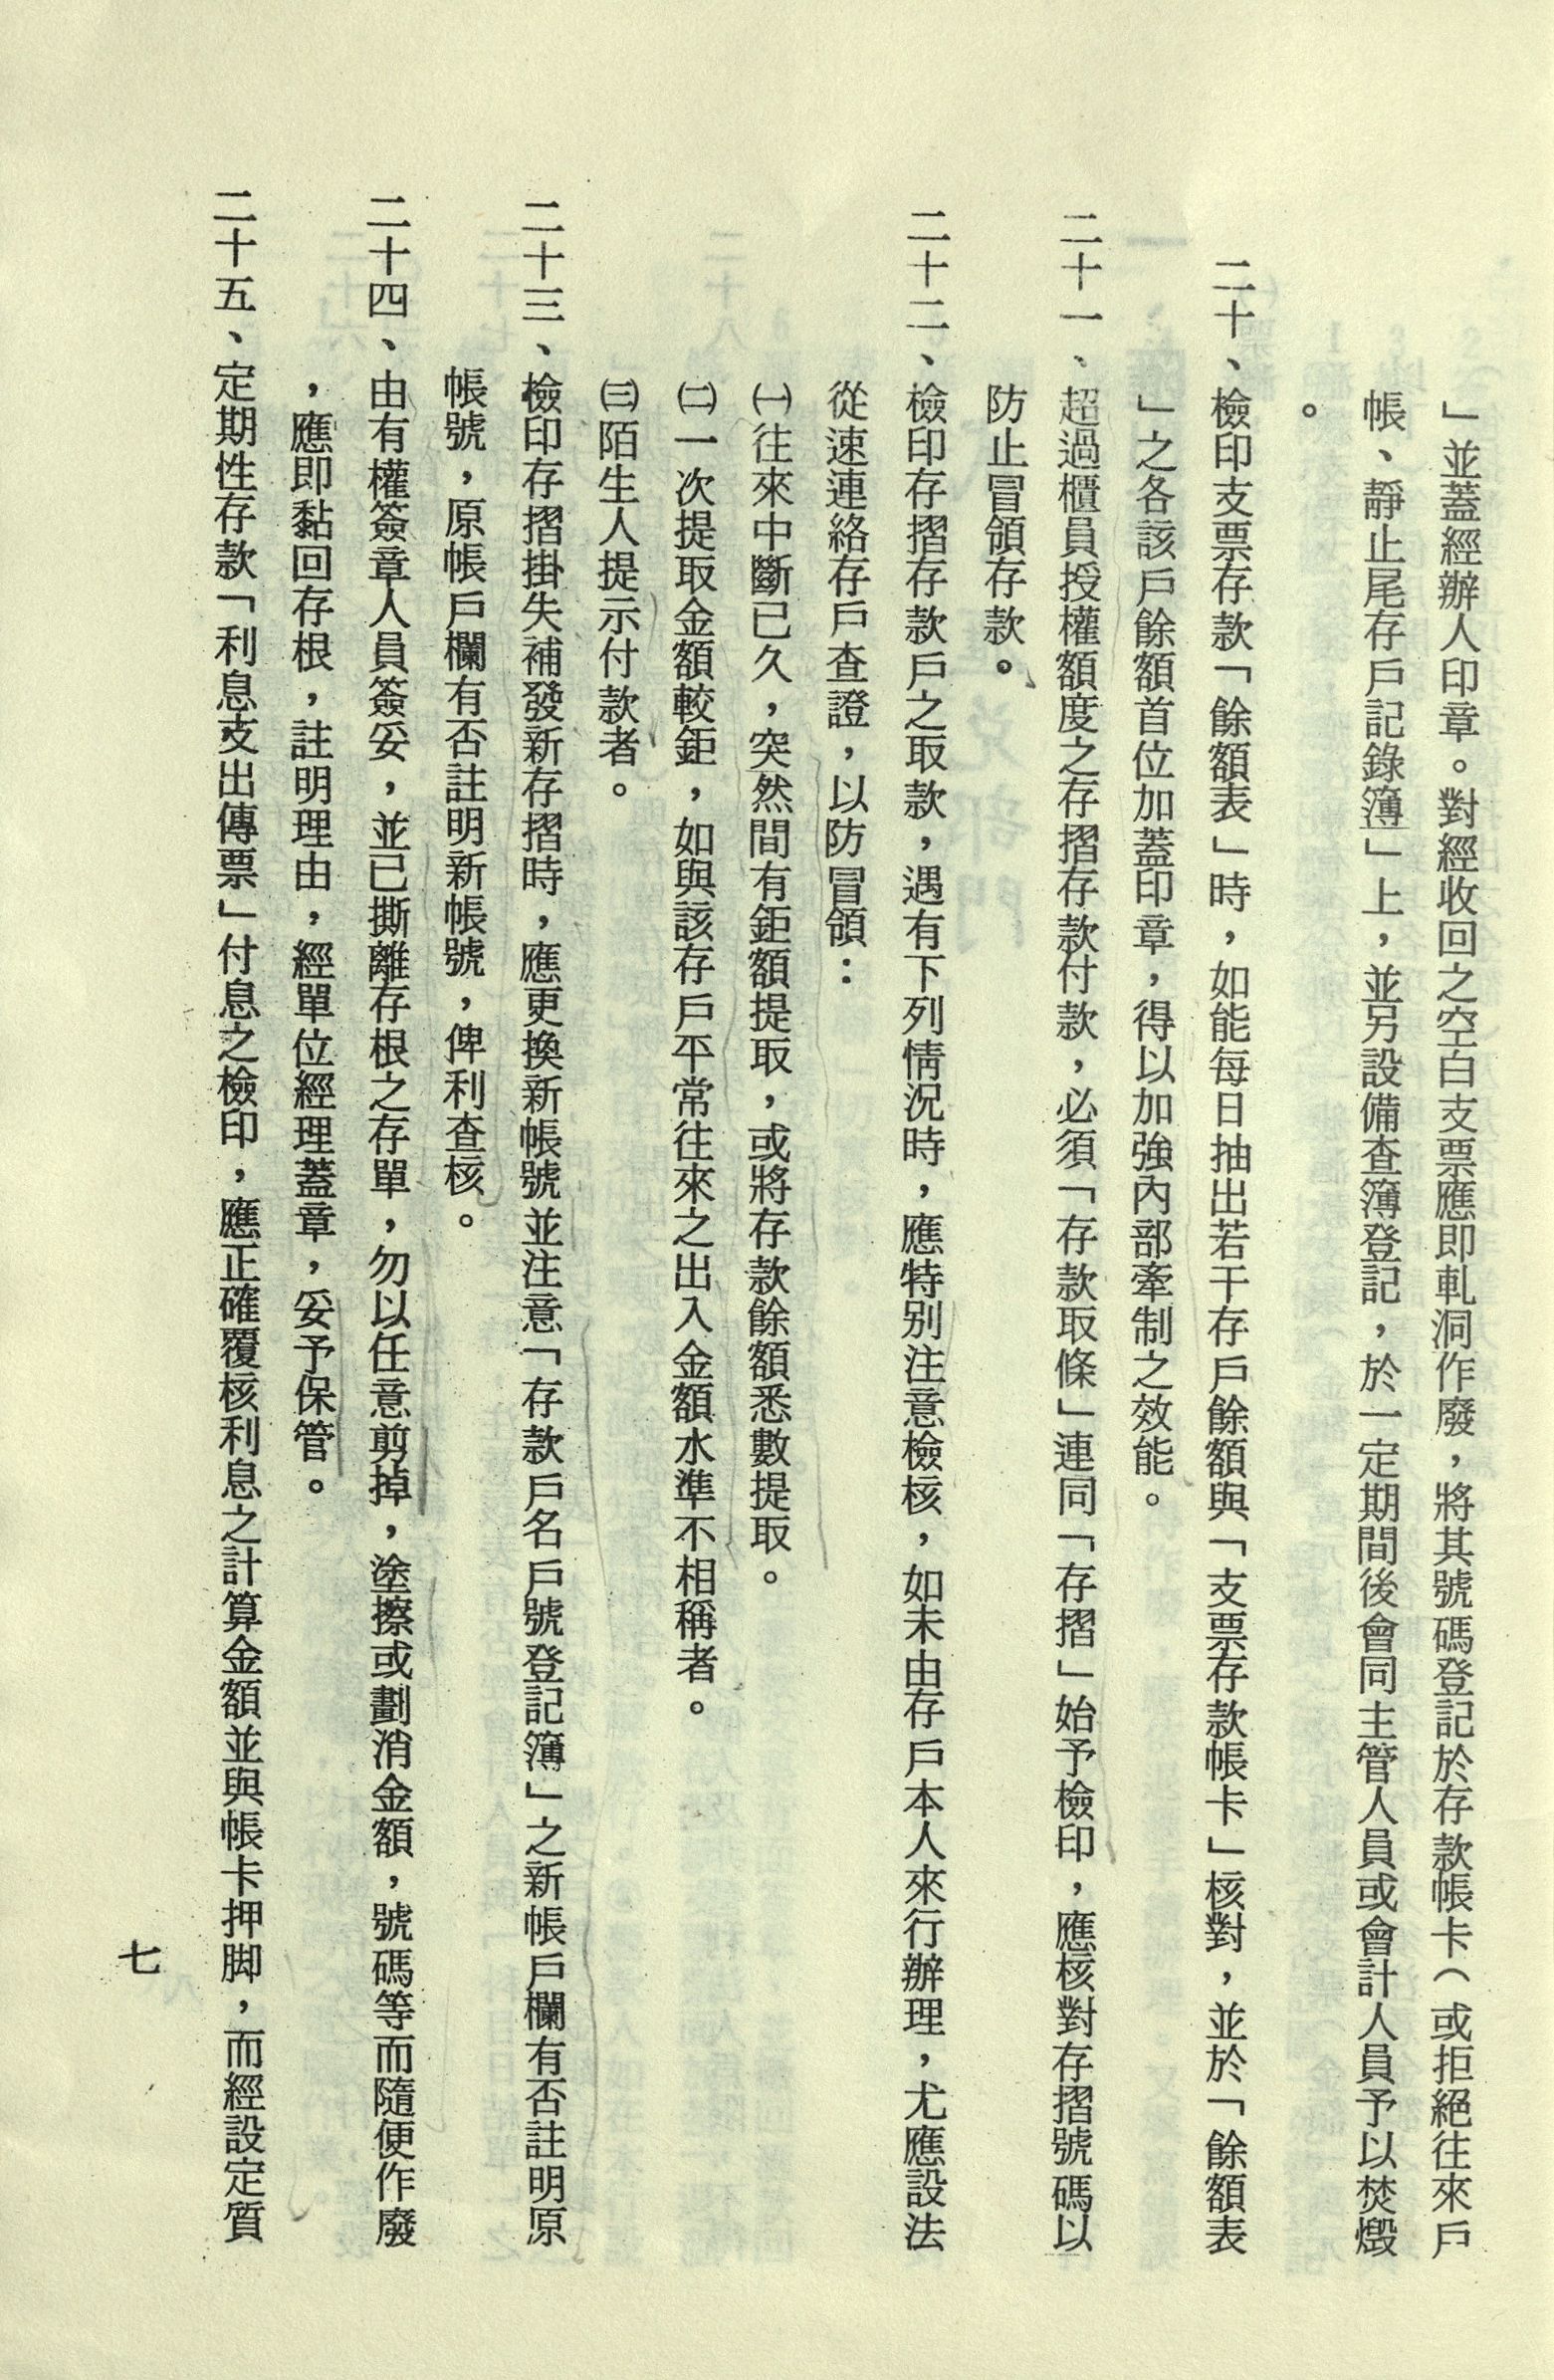 」並蓋經辦人印章。對經收回之空白支票應即軋洞作廢，將其號碼登記於存款帳卡（或拒絕往來戶
帳、靜止尾存戶記錄簿」上，並另設備查簿登記，於一定期間後會同主管人員或會計人員予以焚燬
。
二十、檢印支票存款「餘額表」時，如能每日抽出若干存戶餘額與「支票存款帳卡」核對，並於「餘額表
」之各該戶餘額首位加蓋印章，得以加強內部牽制之效能。
二十一、超過櫃員授權額度之存摺存款付款，必須「存款取條」連同「存摺」始予檢印，應核對存摺號碼以
防止冒領存款。
二十二、檢印存摺存款戶之取款，遇有下列情況時，應特別注意檢核，如未由存戶本人來行辦理，尤應設法
從速連絡存戶查證，以防冒領：
㈠往來中斷已久，突然間有鉅額提取，或將存款餘額悉數提取。
㈡一次提取金額較鉅，如與該存戶平常往來之出入金額水準不相稱者。
㈢陌生人提示付款者。
二十三、檢印存摺掛失補發新存摺時，應更換新帳號並注意「存款戶名戶號登記簿」之新帳戶欄有否註明原
帳號，原帳戶欄有否註明新帳號，俾利查核。
二十四、由有權簽章人員簽妥，並已撕離存根之存單，勿以任意剪掉，塗擦或劃消金額，號碼等而隨便作廢
，應即黏回存根，註明理由，經單位經理蓋章，妥予保管。
二十五、定期性存款「利息支出傳票」付息之檢印，應正確覆核利息之計算金額並與帳卡押脚，而經設定質
七